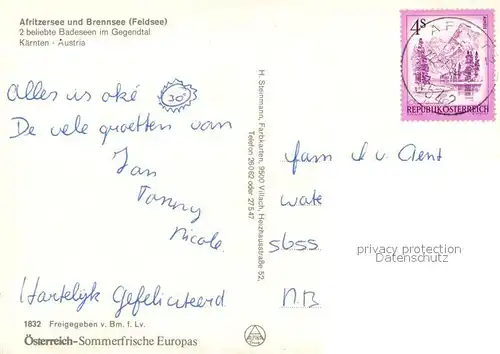 Afritzersee und Brennsee (Feldsee)
2 beliebte Badeseen im Gegendtal
Kärnten - Austria
Alles is oké 30°
De vele groetten van
Jan
Tonny
Nicole.
Hartelijk Gefeliciteerd
1832 Freigegeben v. Bm. f. Lv.
Österreich-Sommerfrische Europas
H. Steinmann, Farbkarten, 9500 Villach, Herzhausstraße 52,
Telefon 26 0 62 oder 27 5 47
4S
REPUBLIK ÖSTERREICH
fam d v Aent
wate
sbss
N.B
privacy protection
Datenschutz